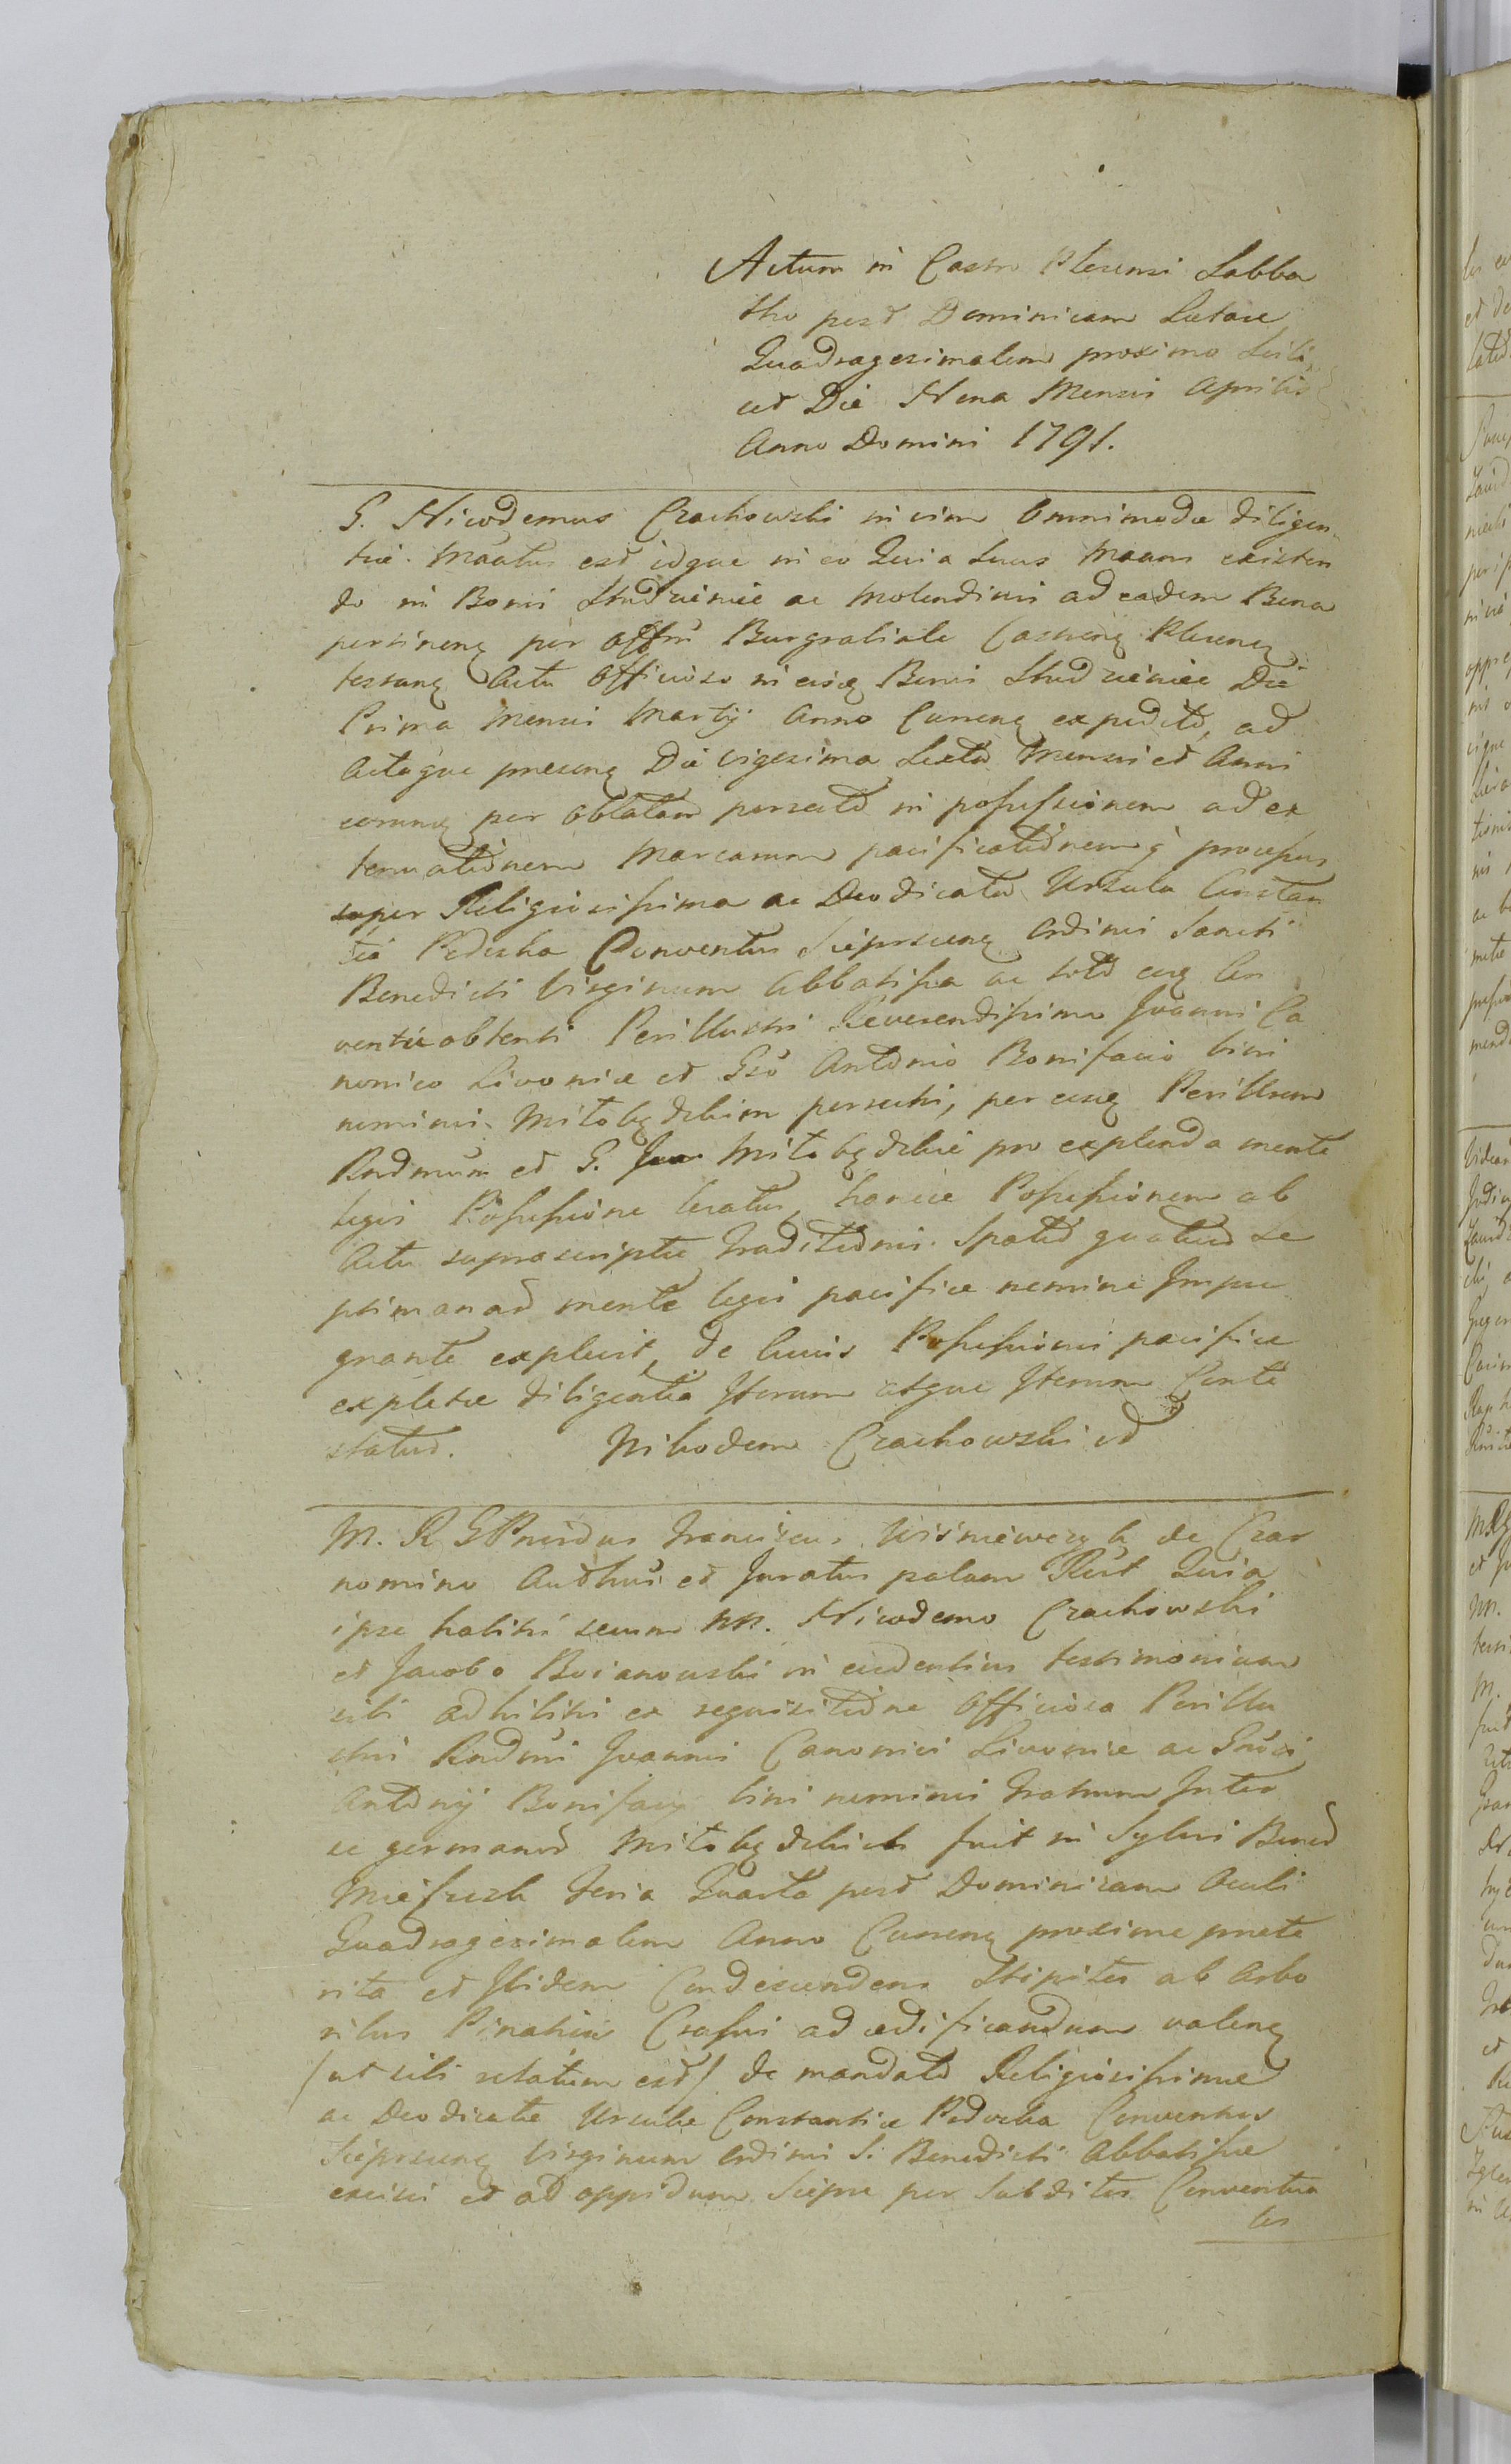 Actum in Castro Plocensi Sabba
tho post Dominicam Laetare
Quadragesimalem proximo Scili
cet Die Nona Mensis Aprilis
Anno Domini 1791.
G. Nicodemus Czachowski in vim Omnimodae diligen
tiae est idque in eo Quia Suus existen
do in Bonis Studzieniec ac Molendini ad eadem Bona
pertinen per Burgrabiale Castren Plocen
Actu Officioso in eisq Bonis Studzieniec Die
Prima Mensis Martij Anno Curren expedito, ad
Actaque presen Die vigesima Sexta Mensis et Anni
eorunq per Oblatam porrecto in possessionem ad ex
tenuationem Marcarum processus
super Religiosissima ac Deo dicata Ursula Constan
tia Conventus Sieprscien Ordinis Sancti
Benedicti Virginum Abbatissa ac toto eiusq Con
ventu obtenti Perillustri Reverendissimo Joanni Ca
nonico Livoniae et Gso Antonio Bonifacio bini
nominis Mitobędzkim per eosq Perillrem
Rndmum et G. Mitobędzkie pro explenda mente
legis Possessione locatus, hancce Possessionem ab
Actu suprascriptae Traditionis Spatio quatuor Se
ptimanar mente legis pacifice nemine Impu
gnante explevit, de cuius Possessionis pacifice
expletae diligentia Iterum atque Iterum Conte
status. Nikodem Czachowski
M. R G Franciscus Wiśniewczyk de Czar
nomino et Juratus palam Quia
ipse habitis secum NN. Nicodemo Czachowski
et Jacobo Boianowski in evidentius testimonium
sibi adhibitis ex requisitione Officiosa Perillu
stris Rndmi Joannis Canonici Livoniae ac
Antonij Bonifacij bini nominis Fratrum Inter
se germanor Mitobędzkich fuit in Sylvis Bonor
Feria Quarta post Dominicam Oculi
Quadragesimalem Anno Curren proxime prete
rita et Ibidem Stipites ab Arbo
ribus Crassis ad aedificandum valen
/ut sibi relatum est/ de mandato Religiosissimae
ac Deo dicatae Ursulae Constantiae Conventus
Sieprscien Virginum Ordinis S. Benedicti Abbatissae
excisi et ad oppidum Sieprc per Subditos Conventua
les